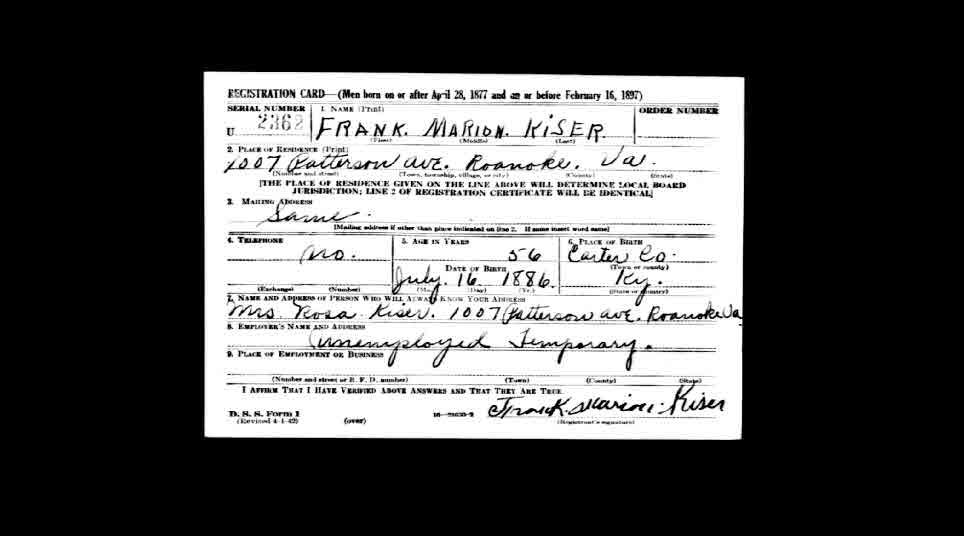 REGISTRATION CARD—(Men born on or after April 28, 1877 and on or before February 16, 1897)
SERIAL NUMBER 1. NAME (Print) ORDER NUMBER
U 2362 FRANK. MARION. KISER.
(First) (Middle) (Last)
2. PLACE OF RESIDENCE (Print)
1007 Patterson AVE. Roanoke. Va.
(Number and street) (Town, township, village, or city) (County) (State)
[THE PLACE OF RESIDENCE GIVEN ON THE LINE ABOVE WILL DETERMINE LOCAL BOARD
JURISDICTION; LINE 2 OF REGISTRATION CERTIFICATE WILL BE IDENTICAL]
3. MAILING ADDRESS
Same.
[Mailing address if other than place indicated on line 2. If same insert word same]
4. TELEPHONE 5. AGE IN YEARS 6. PLACE OF BIRTH
no. 56 Carter Co.
DATE OF BIRTH (Town or county)
July. 16 1886. Ky.
(Exchange) (Number) (Mo.) (Day) (Yr.) (State or country)
7. NAME AND ADDRESS OF PERSON WHO WILL ALWAYS KNOW YOUR ADDRESS
Mrs. Rosa Kiser. 1007 Patterson ave. Roanoke Va
8. EMPLOYER'S NAME AND ADDRESS
Unemployed Temporary.
9. PLACE OF EMPLOYMENT OR BUSINESS
(Number and street or R. F. D. number) (Town) (County) (State)
I AFFIRM THAT I HAVE VERIFIED ABOVE ANSWERS AND THAT THEY ARE TRUE.
Frank. Marion. Kiser
D. S. S. Form 1 16—21630-2 (Registrant's signature)
(Revised 4-1-42) (over)